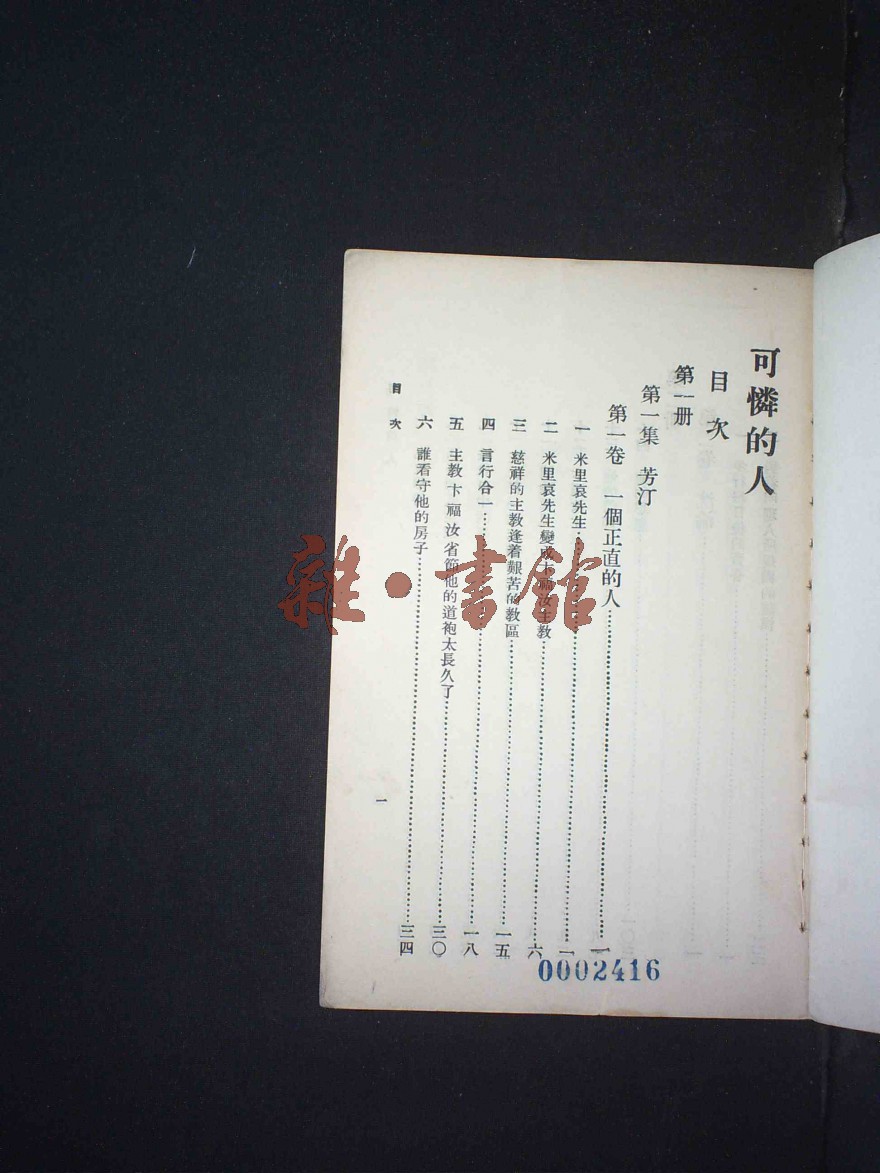 可憐的人
目次
第一册
第一集 芳汀
第一卷 一個正直的人……一
一 米里哀先生……一
二 米里哀先生變成卞福汝主教……六
三 慈祥的主教逢着艱苦的教區……一五
四 言行合一……一八
五 主教卞福汝省節他的道袍太長久了……三〇
六 誰看守他的房子……三四
目次
一
0002416
雜·書館